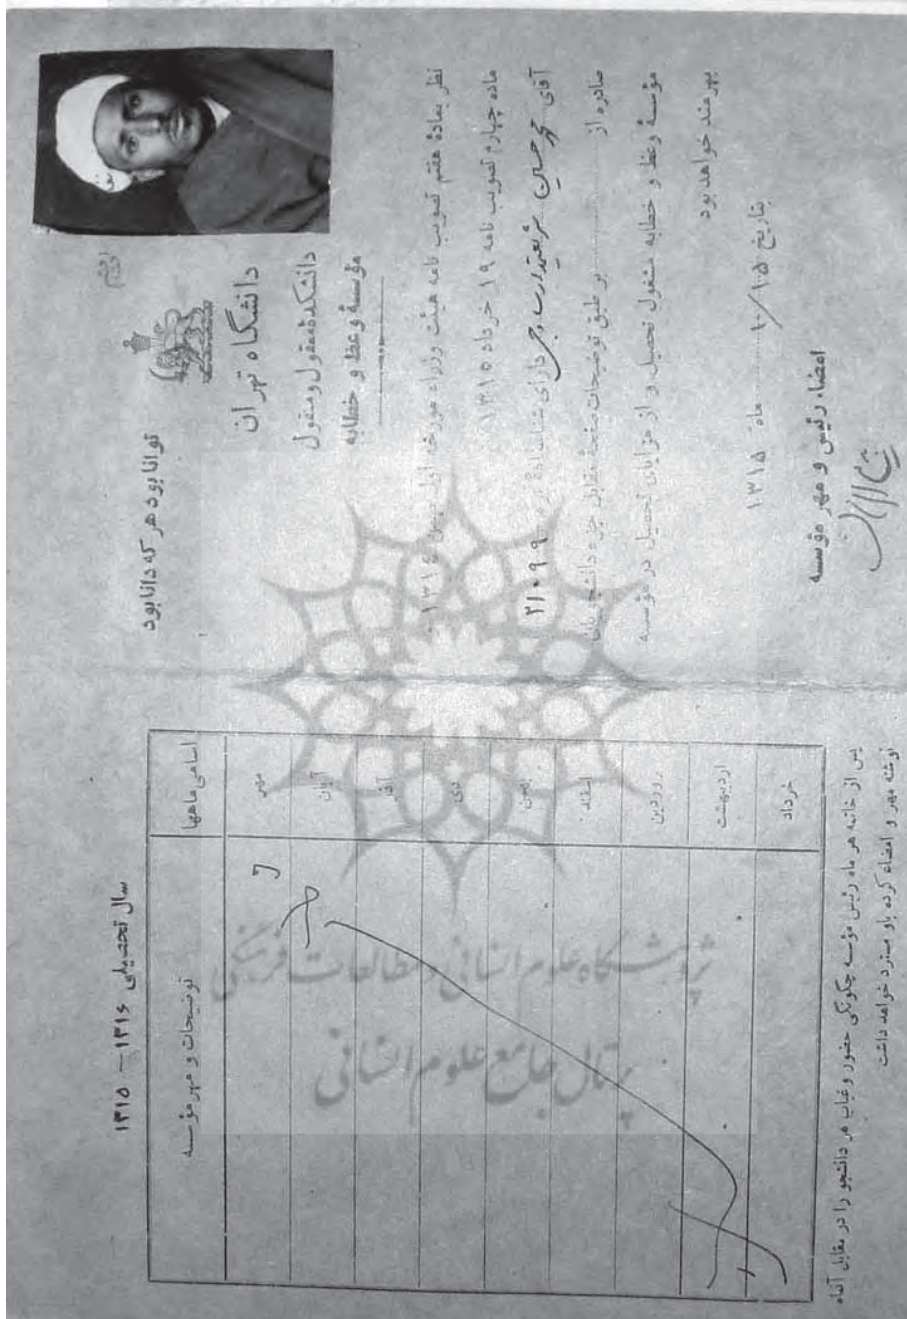 توانا بود هر که دانا بود
دانشگاه تهران
دانشکده معقول و منقول
مؤسسهٔ وعظ و خطابه
نظر بمادهٔ هفتم تصویب نامه هیئت وزراء مورخه اول بهمن ۱۳۱۴ و
ماده چهارم تصویب نامه ۱۹ خرداد ۱۳۱۵
آقای محمد حسین شریعتمدار ساوجی دارای شناسنامهٔ ۲۱۰۹۹
صادره از بر طبق توضیحات صفحهٔ مقابل جزء دانشجویان
مؤسسهٔ وعظ و خطابه مشغول تحصیل و از مزایای تحصیل در مؤسسه
بهره‌مند خواهد بود
بتاریخ ۱۰/۱۰۵ ماه ۱۳۱۵
امضاء رئیس و مهر مؤسسه
سال تحصیلی ۱۳۱۶ – ۱۳۱۵
اسامی ماهها توضیحات و مهر مؤسسه
مهر
آبان
آذر
دی
بهمن
اسفند
فروردین
اردیبهشت
خرداد
پس از خاتمه هر ماه رئیس مؤسسه چگونگی حضور و غیاب هر دانشجو را در مقابل آنماه
نوشته مهر و امضاء کرده باو مسترد خواهد داشت
پژوهشگاه علوم انسانی و مطالعات فرهنگی
پرتال جامع علوم انسانی